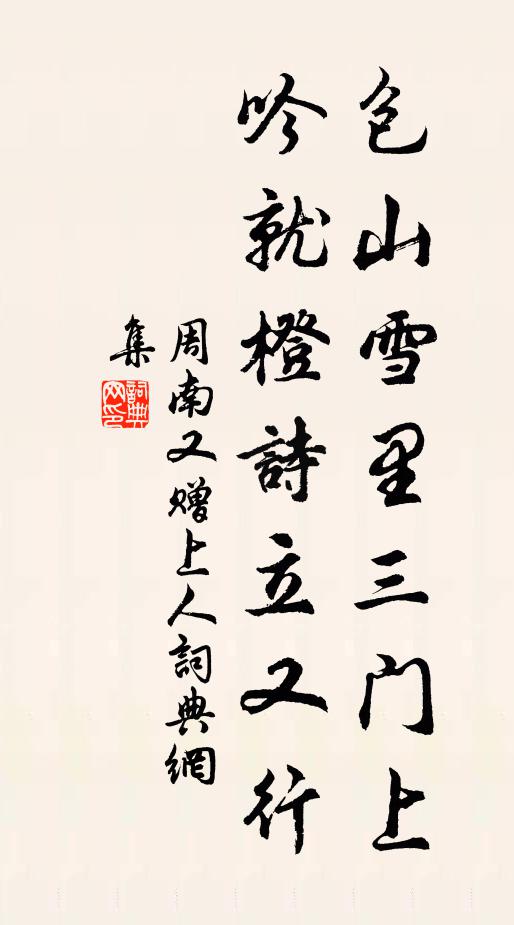 包山雪里三门上
吟就橙詩立又行
周南又赠上人詞典網
集
詞典
网印